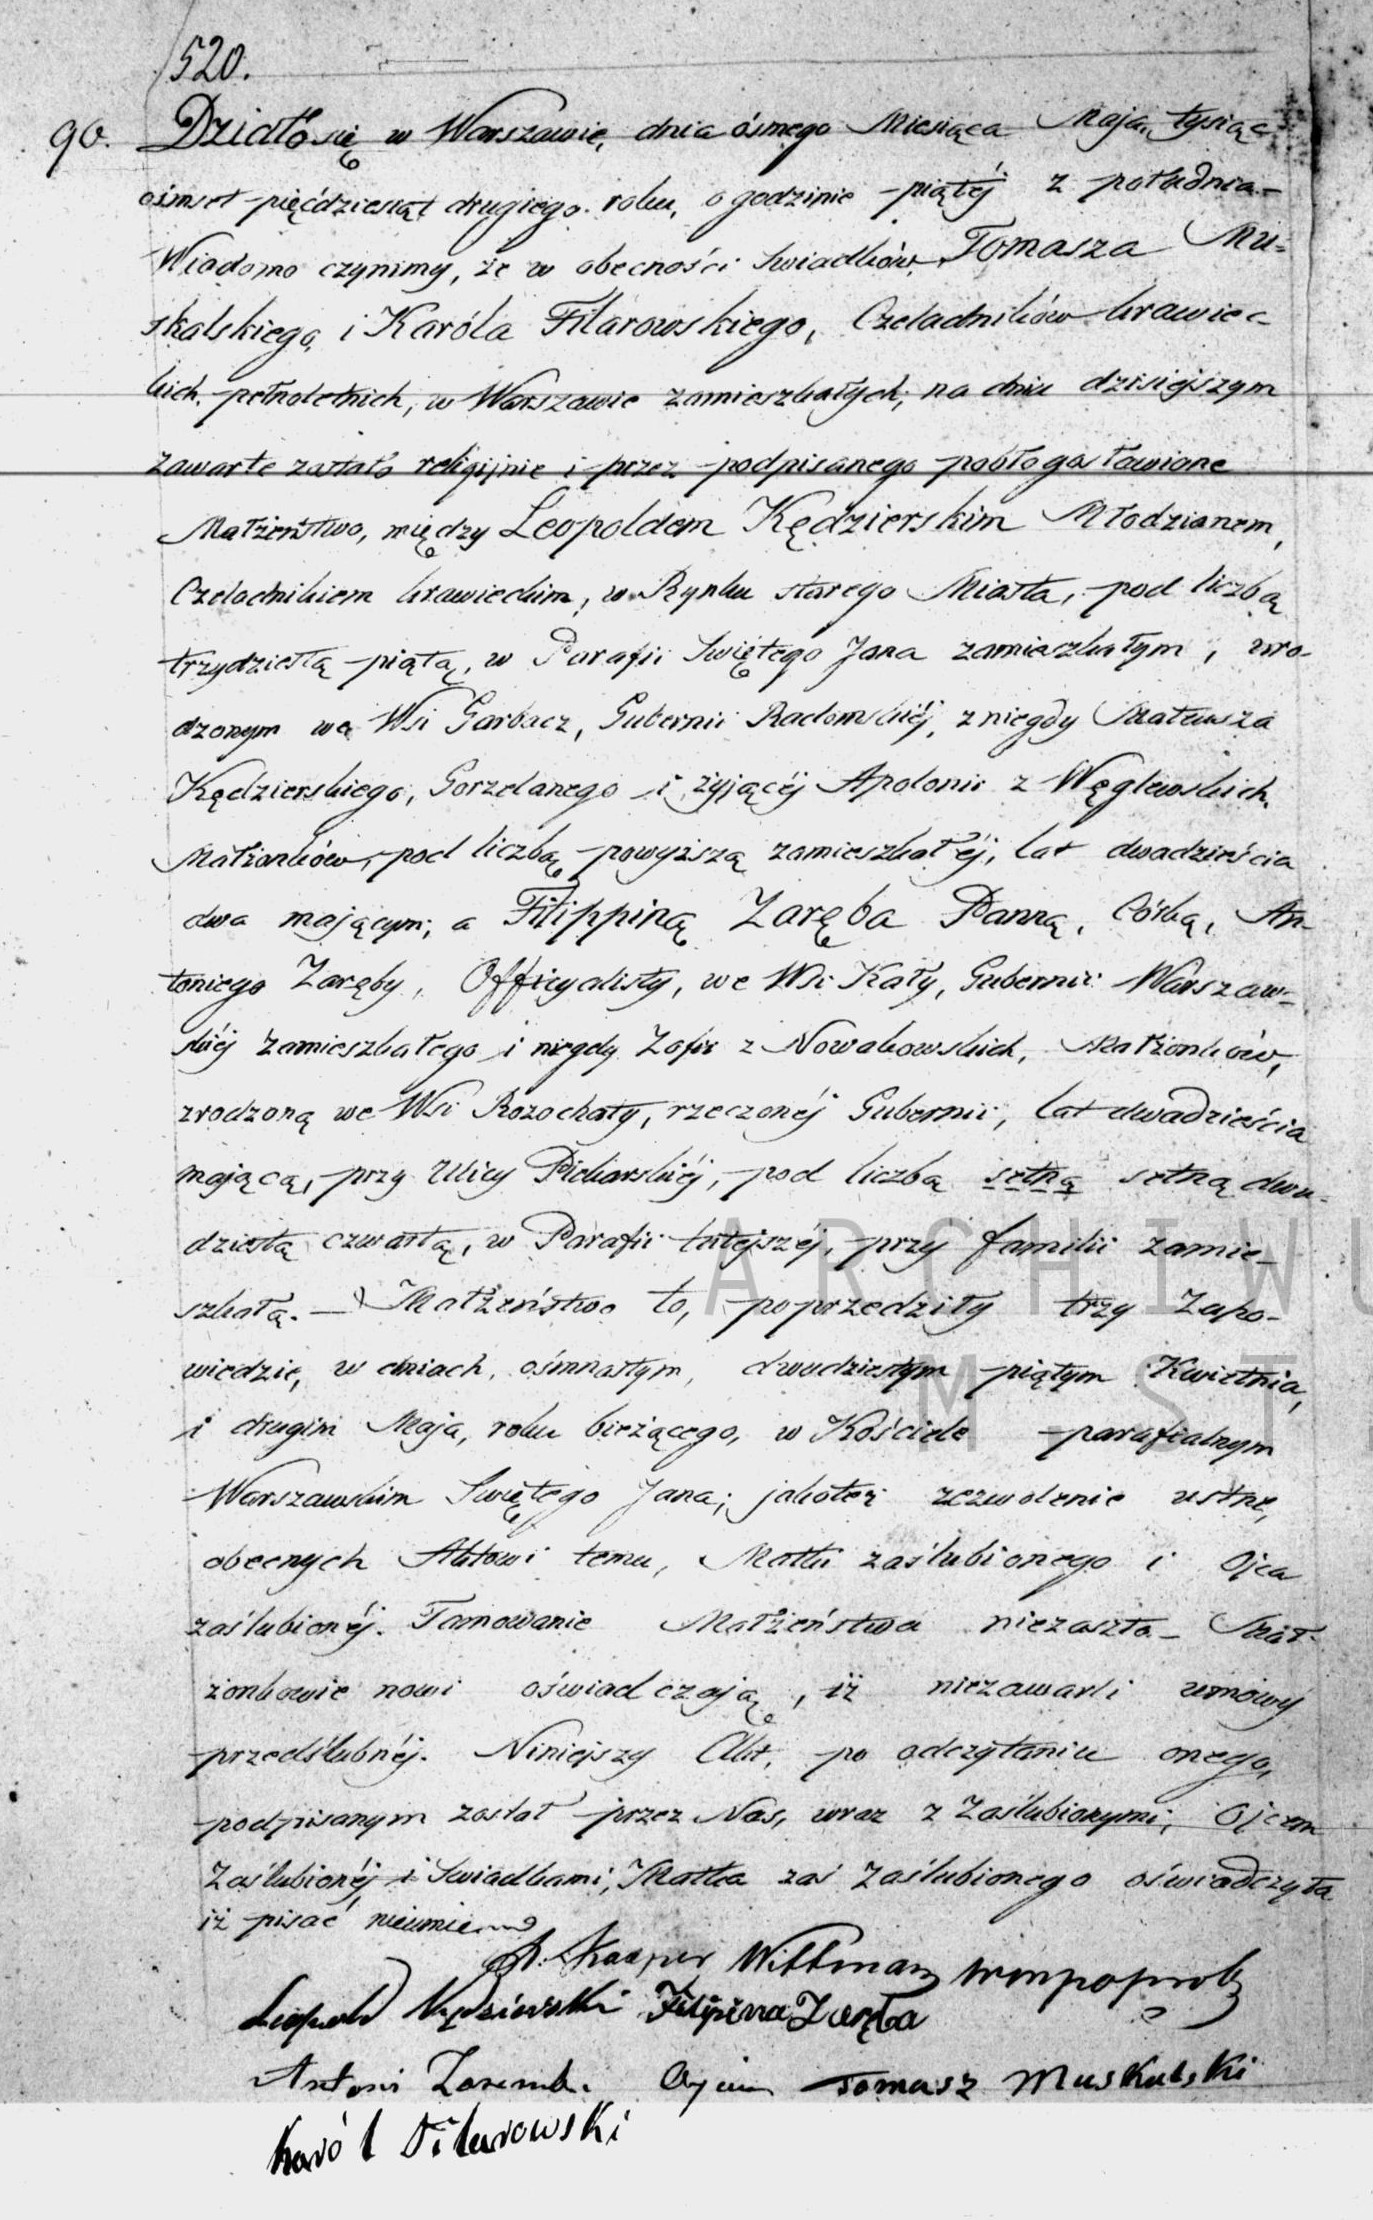 520.
90. Działo się w Warszawie, dnia ósmego Miesiąca Maja, tysiąc
ośmset pięćdziesiąt drugiego roku, o godzinie piątéj z południa
Wiadomo czynimy, że w obecności Swiadków, Tomasza Mu=
skalskiego, i Karóla Filarowskiego, Czeladników krawiec
kich, pełnoletnich, w Warszawie zamieszkałych, na dniu dzisiejszym
zawarte zostało religijnie i przez podpisanego pobłogosławione
Małżeństwo, między Leopoldem Kędzierskim Młodzianem,
Czeladnikiem krawieckim, w Rynku starego Miasta, pod liczbą
trzydziestą piątą, w Parafii Swiętego Jana zamieszkałym, uro-
dzonym we Wsi Garbacz, Gubernii Radomskiéj, z niegdy Mateusza
Kędzierskiego, Gorzelanego i żyjącéj Apolonii z Węglewskich,
Małżonków, pod liczbą powyższą zamieszkałéj, lat dwadzieścia
dwa mającym; a Filippiną Zaręba Panną, Córką, An-
toniego Zaręby, Officyalisty, we Wsi Kąty, Gubernii Warszaw=
skiéj zamieszkałego i niegdy Zofii z Nowakowskich, Małżonków,
zrodzoną we Wsi Rozochaty, rzeczonéj Gubernii, lat dwadzieścia
mającą, przy Ulicy Piekarskiéj, pod liczbą setną setną dwu-
dziestą czwartą, w Parafii tutejszéj, przy familii zamie-
szkałą. — Małżeństwo to, poprzedziły trzy Zapo-
wiedzie, w dniach, ośmnastym, dwudziestym piątym Kwietnia,
i drugim Maja, roku bieżącego, w Kościele parafialnym
Warszawskim Swiętego Jana; jakoteż zezwolenie ustne,
obecnych Aktowi temu, Matki zaślubionego i Ojca
zaślubionéj. Tamowanie Małżeństwa niezaszło. Mał-
żonkowie nowi oświadczają, iż niezawarli umowy
przedślubnéj. Niniejszy Akt, po odczytaniu onego,
podpisanym został przez Nas, wraz z Zaślubionymi, Ojcem
Zaślubionéj i Swiadkami, Matka zaś Zaślubionego oświadczyła
iż pisać nieumie.
X. Kasper Wittman
Leopold Kędzierski Filipina Zaręba
Antoni Zaremba Ojciec Tomasz Muskalski
Karól Filarowski
ARCHIWU
M ST